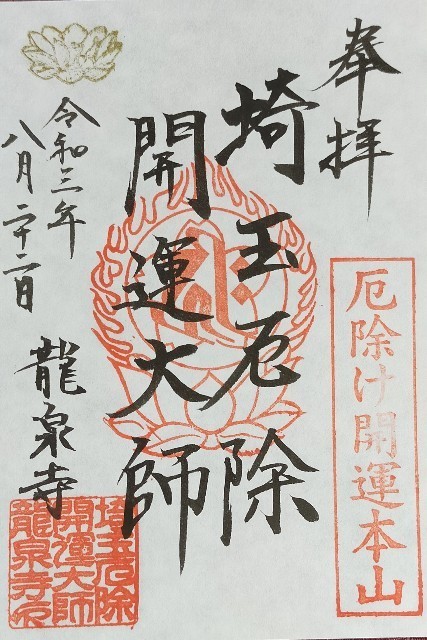 奉拝
厄除け開運本山
埼玉厄除
開運大師
令和三年
八月二十二日
龍泉寺
埼玉厄除
開運大師
龍泉寺印